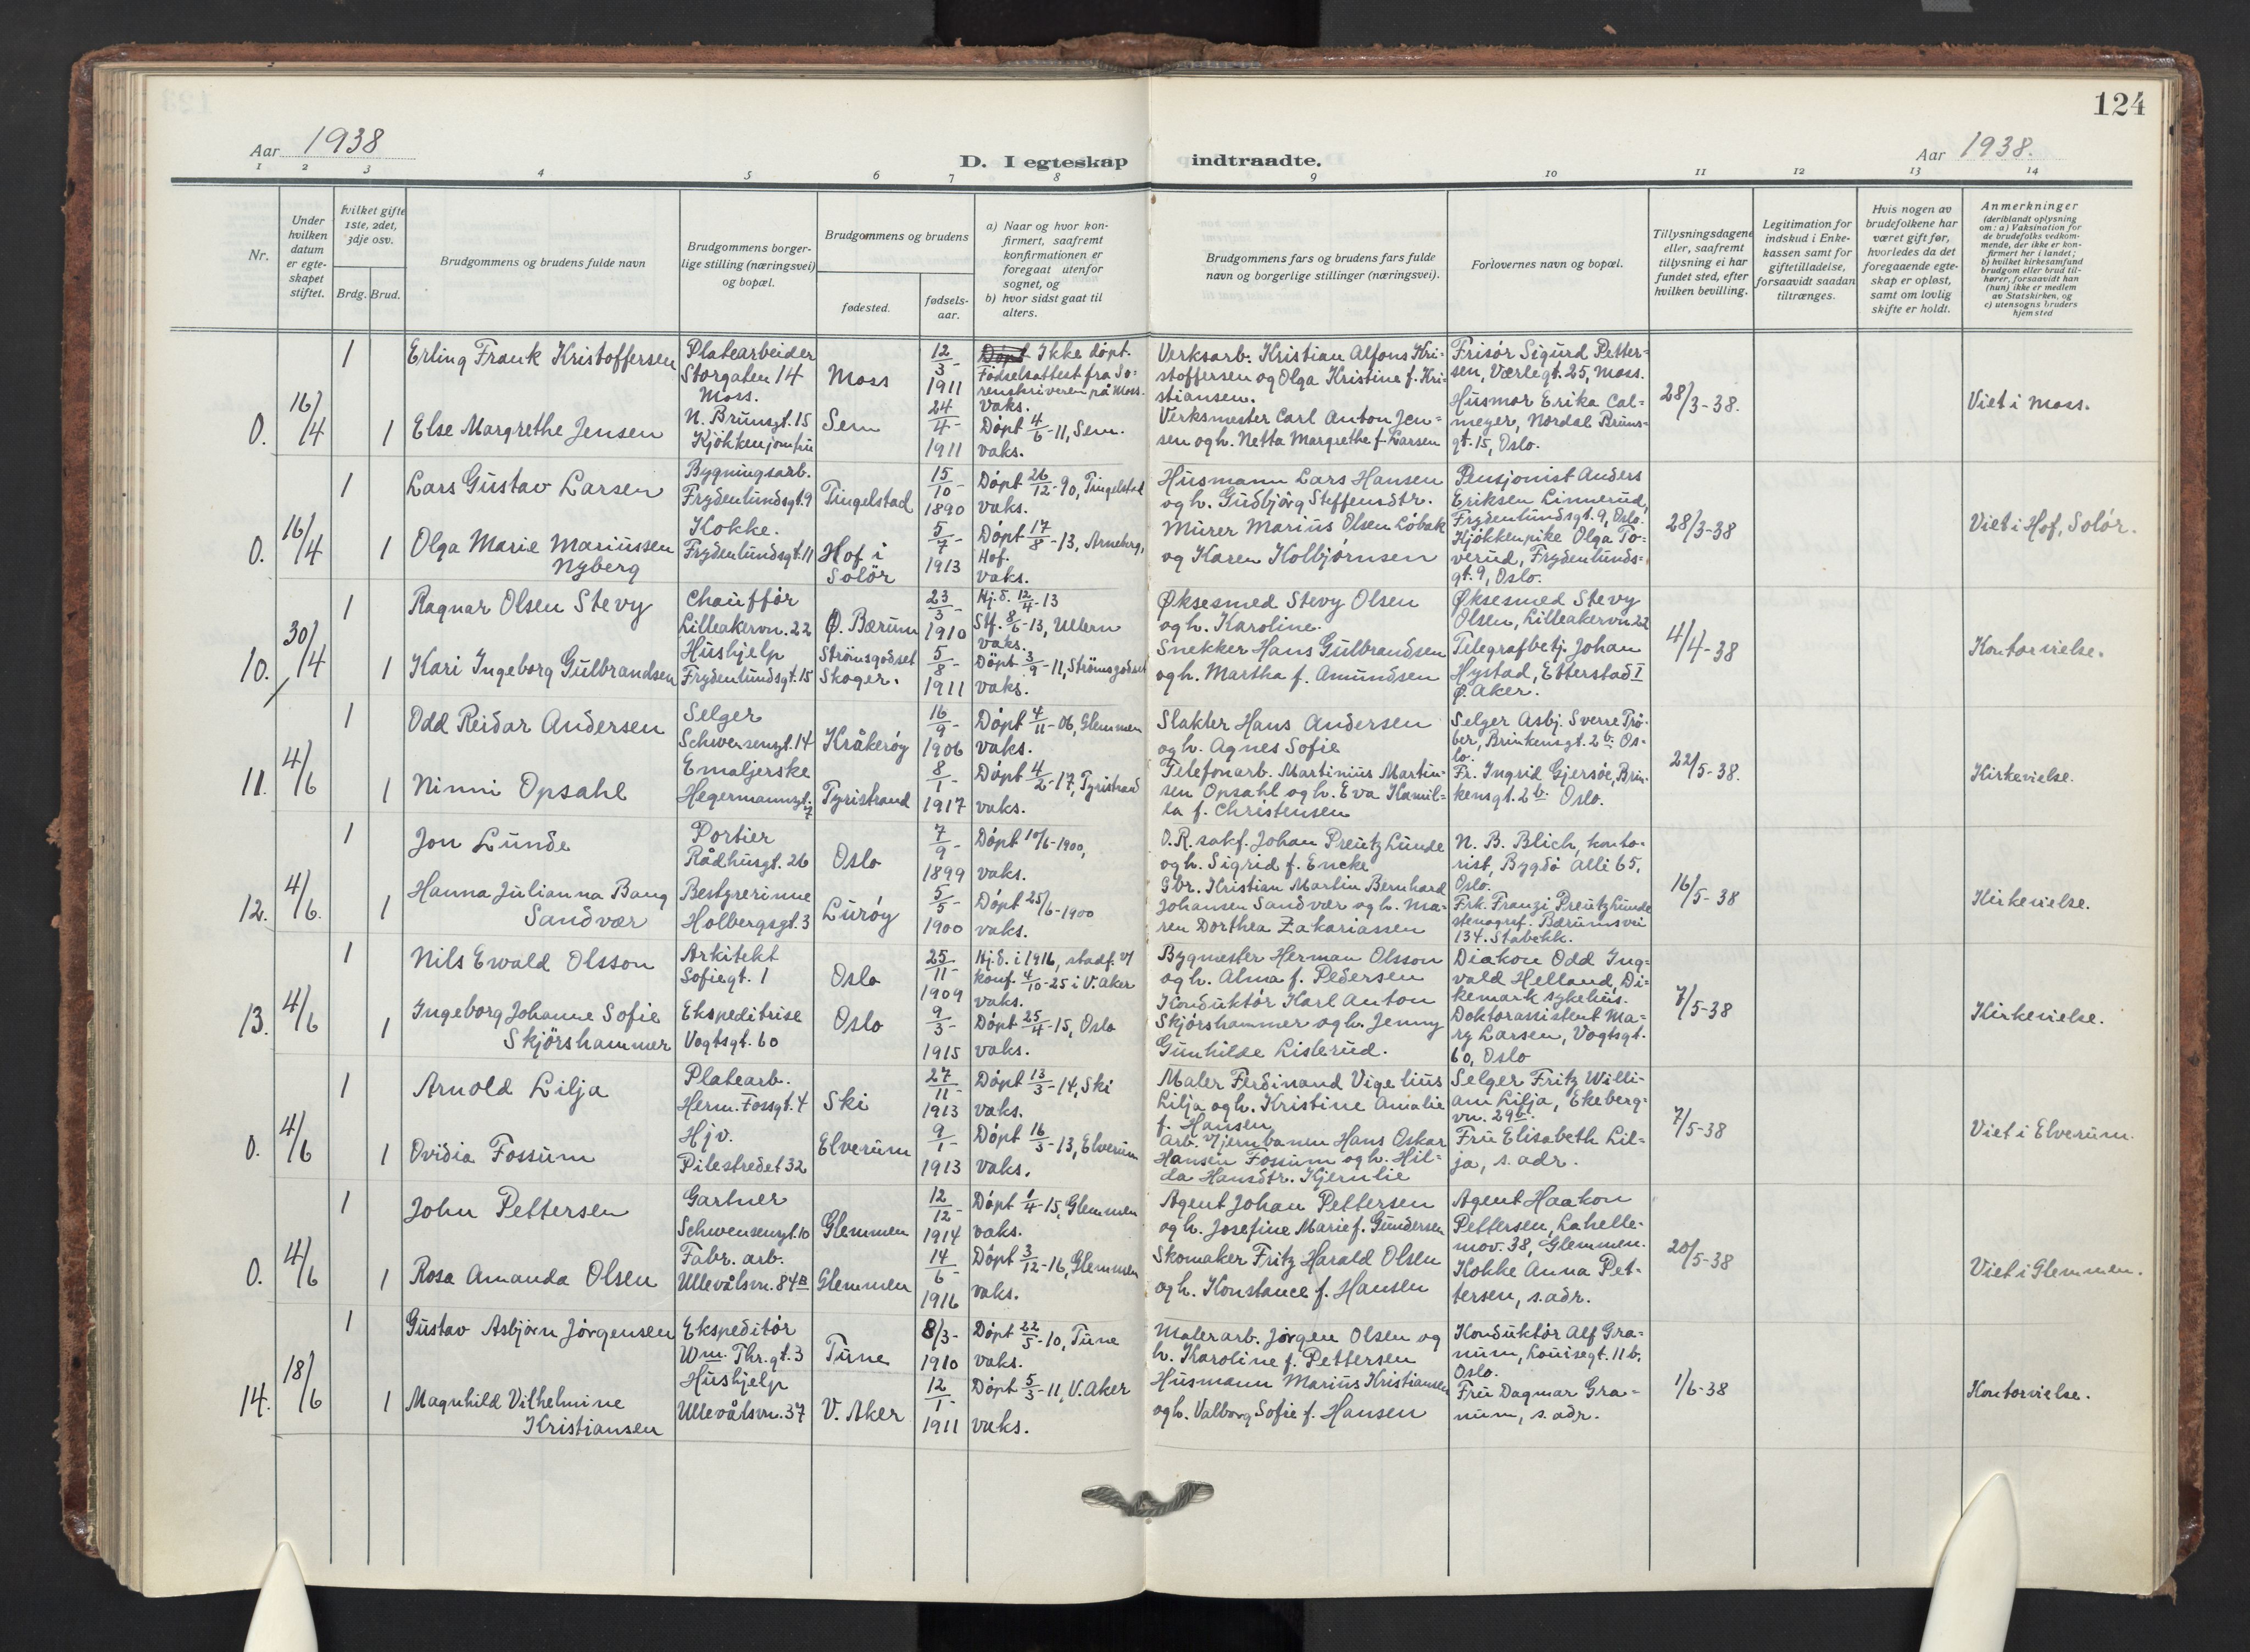 124
Aar 1938
D. I egteskap indtraadte.
Aar 1938.
1 2 3 4 5 6 7 8 9 10 11 12 13 14
Nr.
Under hvilken datum er egte- skapet stiftet.
Hvilket gifte 1ste, 2det, 3dje osv.
Brdg. Brud.
Brudgommens og brudens fulde navn
Brudgommens borger- lige stilling (næringsvei) og bopæl.
Brudgommens og brudens
fødested.
fødsels- aar.
a) Naar og hvor kon- firmert, saafremt konfirmationen er foregaat utenfor sognet, og
b) hvor sidst gaat til alters.
Brudgommens fars og brudens fars fulde navn og borgerlige stillinger (næringsvei).
Forlovernes navn og bopæl.
Tillysningsdagene eller, saafremt tillysning ei har fundet sted, efter hvilken bevilling.
Legitimation for indskud i Enke- kassen samt for giftetilladelse, forsaavidt saadan tiltrænges.
Hvis nogen av brudefolkene har været gift før, hvorledes da det foregaaende egte- skap er opløst, samt om lovlig skifte er holdt.
Anmerkninger (deriblandt oplysning om: a) Vaksination for de brudefolks vedkom- mende, der ikke er kon- firmert her i landet; b) hvilket kirkesamfund brudgom eller brud til- hører, forsaavidt han (hun) ikke er medlem av Statskirken, og c) utensogns bruders hjemsted
0. 16/4
1 Erling Frank Kristoffersen
Platearbeider
Storgaten 14
Moss.
Moss
12/3-1911
Døpt Ikke døpt.
Fødselsattest fra So-
renskriveren på Moss.
vaks.
Verksarb. Kristian Alfons Kri-
stoffersen og Olga Kristine f. Kri-
stiansen.
Frisør Sigurd Petter-
sen, Værlegt. 25, Moss.
28/3-38.
Viet i Moss.
1 Else Margrethe Jensen
N. Brunsgt. 15
Kjøkkenjomfru
Sem
24/4-1911
Døpt 4/6-11, Sem.
vaks.
Verksmester Carl Anton Jen-
sen og h. Netta Margrethe f. Larsen
Husmor Erika Cal-
meyer, Nordal Bruns-
gt. 15, Oslo.
0. 16/4
1 Lars Gustav Larsen
Bygningsarb.
Frydenlundsgt. 9
Tingelstad
15/10-1890
Døpt 26/12-90, Tingelstad
vaks.
Husmann Lars Hansen
og h. Gudbjørg Steffensdtr.
Pensjonist Anders
Eriksen Linnerud,
Frydenlundsgt. 9, Oslo.
28/3-38
Viet i Hof, Solør.
1 Olga Marie Mariussen
Nyberg
Kokke.
Frydenlundsgt. 11
Hof i
Solør
5/7-1913
Døpt 17/8-13, Arneberg,
Hof.
vaks.
Murer Marius Olsen Løbak
og Karen Kolbjørnsen
Kjøkkenpike Olga To-
verud, Frydenlunds-
gt. 9, Oslo.
10. 30/4
1 Ragnar Olsen Stevy
Chauffør
Lilleakervn. 22
Ø. Bærum
23/3-1910
Hj.d. 12/4-13
Stf. 8/6-13, Ullern
vaks.
Øksesmed Stevy Olsen
og h. Karoline.
Øksesmed Stevy
Olsen, Lilleakervn 22
4/4-38
Kontorvielse.
1 Kari Ingeborg Gulbrandsen
Hushjelp
Frydenlundsgt. 15
Strømsgodset
Skoger.
5/8-1911
Døpt 3/9-11, Strømsgodset
vaks.
Snekker Hans Gulbrandsen
og h. Martha f. Amundsen
Telegrafbetj. Johan
Hystad, Etterstad I
Ø. Aker.
11. 4/6
1 Odd Reidar Andersen
Selger
Schwensensgt. 14
Kråkerøy
16/9-1906
Døpt 4/11-06, Glemmen
vaks.
Slakter Hans Andersen
og h. Agnes Sofie
Selger Asbj. Sverre Trö-
ber, Brinkensgt. 2b. Os-
lo.
22/5-38.
Kirkevielse.
1 Ninni Opsahl
Emaljerske
Hegermannsgt. 7
Tyristrand
8/1-1917
Døpt 4/2-17, Tyristrand
vaks.
Telefonarb. Martinius Martin-
sen Opsahl og h. Eva Kamil-
la f. Christensen
Fr. Ingrid Gjersøe, Brin-
kensgt. 2b. Oslo.
12. 4/6.
1 Jon Lunde
Portier
Rådhusgt. 26
Oslo
7/9-1899
Døpt 10/6-1900,
vaks.
O.R.sakf. Johan Preutz Lunde
og h. Sigrid f. Encke
N. B. Blich, konto-
rist, Bygdø allé 65,
Oslo.
16/5-38
Kirkevielse.
1 Hanna Julianna Bang
Sandvær
Bestyrerinne
Holbergsgt. 3
Lurøy
5/5-1900
Døpt 25/6-1900
vaks.
Gbr. Kristian Martin Bernhard
Johansen Sandvær og h. Ma-
ren Dorthea Zakariassen
Frk. Franzi Preutz Lunde
stenograf. Bærumsvei
134. Stabekk.
13. 4/6
1 Nils Ewald Olsson
Arkitekt
Sofiegt. 1
Oslo
25/11-1909
Hj.d. i 1916, stadf. v/
konf. 4/10-25 i V. Aker
vaks.
Bygmester Herman Olsson
og h. Alma f. Pedersen
Diakon Odd Ing-
vald Helland, Di-
kemark sykehus.
7/5-38
Kirkevielse.
1 Ingeborg Johanne Sofie
Skjørshammer
Ekspeditrise
Vogtsgt. 60
Oslo
9/3-1915
Døpt 25/4-15, Oslo
vaks.
Konduktør Karl Anton
Skjørshammer og h. Jenny
Gunhilde Listerud.
Doktorassistent Ma-
ry Larsen, Vogtsgt.
60, Oslo
0. 4/6
1 Arnold Lilja
Platearb.
Herm. Fossgt. 4
Ski
27/11-1913
Døpt 13/3-14, Ski
vaks.
Maler Ferdinand Vigelius
Lilja og h. Kristine Amalie
f. Hansen
Selger Fritz Willi-
am Lilja, Ekeberg-
vn. 29b.
7/5-38
Viet i Elverum.
1 Ovidia Fossum
Hjv.
Pilestredet 32
Elverum
9/1-1913
Døpt 16/3-13, Elverum
vaks.
Arb. v/jernbanen Hans Oskar
Hansen Fossum og h. Hil-
da Hansdtr. Kjernlie
Fru Elisabeth Lil-
ja, s. adr.
0. 4/6
1 John Pettersen
Gartner
Schwensensgt. 10
Glemmen
12/12-1914
Døpt 1/4-15, Glemmen
vaks.
Agent Johan Pettersen
og h. Josefine Marie f. Gundersen
Agent Haakon
Pettersen, Lahelle-
mov. 38, Glemmen.
20/5-38
Viet i Glemmen.
1 Rosa Amanda Olsen
Fabr. arb.
Ullevålsvn. 84B
Glemmen
14/6-1916
Døpt 3/12-16, Glemmen
vaks.
Skomaker Fritz Harald Olsen
og h. Konstance f. Hansen
Kokke Anna Pet-
tersen, s. adr.
14. 18/6
1 Gustav Asbjørn Jørgensen
Ekspeditør
Wm. Thr.gt. 3
Tune
8/3-1910
Døpt 22/5-10, Tune
vaks.
Malerarb. Jørgen Olsen og
h. Karoline f. Pettersen
Konduktør Alf Gra-
num, Louisegt. 11b,
Oslo.
1/6-38
Kontorvielse.
1 Magnhild Vilhelmine
Kristiansen
Hushjelp
Ullevålsvn. 37
V. Aker
12/1-1911
Døpt 5/3-11, V. Aker
vaks.
Husmann Marius Kristiansen
og h. Valborg Sofie f. Hansen
Fru Dagmar Gra-
num, s. adr.